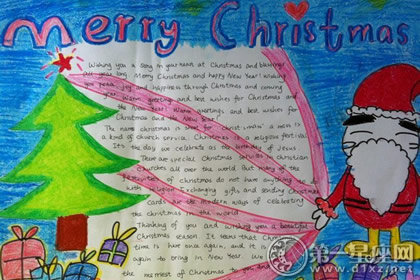 Merry Christmas
Wishing you a song in your heart at Christmas and blessings
all year long. Merry Christmas and happy New Year! wishing
you peace, joy and happiness through Christmas and coming
year. Warm greeting and best wishes for Christmas and
the New Year! Warm greetings and best wishes for
Christmas and the New Year
The name christmas is short for christ'mas' a mass is
a kind of church service. Christmas is a religious festival
It's the day we celebrate as the birthday of Jesus
There are special Christmas services in christian
Churches all over the world. But many of the
festivities of christmas do not have anything
with religion. Exchanging gifts and sending Christmas
Cards are the modern ways of celebrating
the christmas in the world
Thinking of you and wishing you a beautiful
Christmas season. It seems that
time is here once again, and it is
again to bring in New Year. We
the merriest of Christmas to
第一星座网
d1xz.net